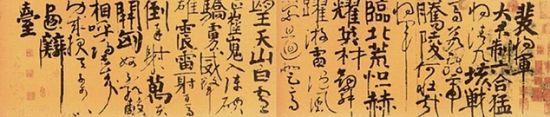 裴將軍
大君制六合猛
將清九垓戰
馬若龍虎
騰陵何壯哉
將軍
臨北荒恒赫
耀英材劍舞
躍游雷隨風
縈且迴登高
望天山白雪
正崔嵬入陣破
驕虜威聲
雄震雷一射百馬
倒再射萬
夫開匈奴不敢敵
相呼歸去來
功成報天子
可以畫麟
臺